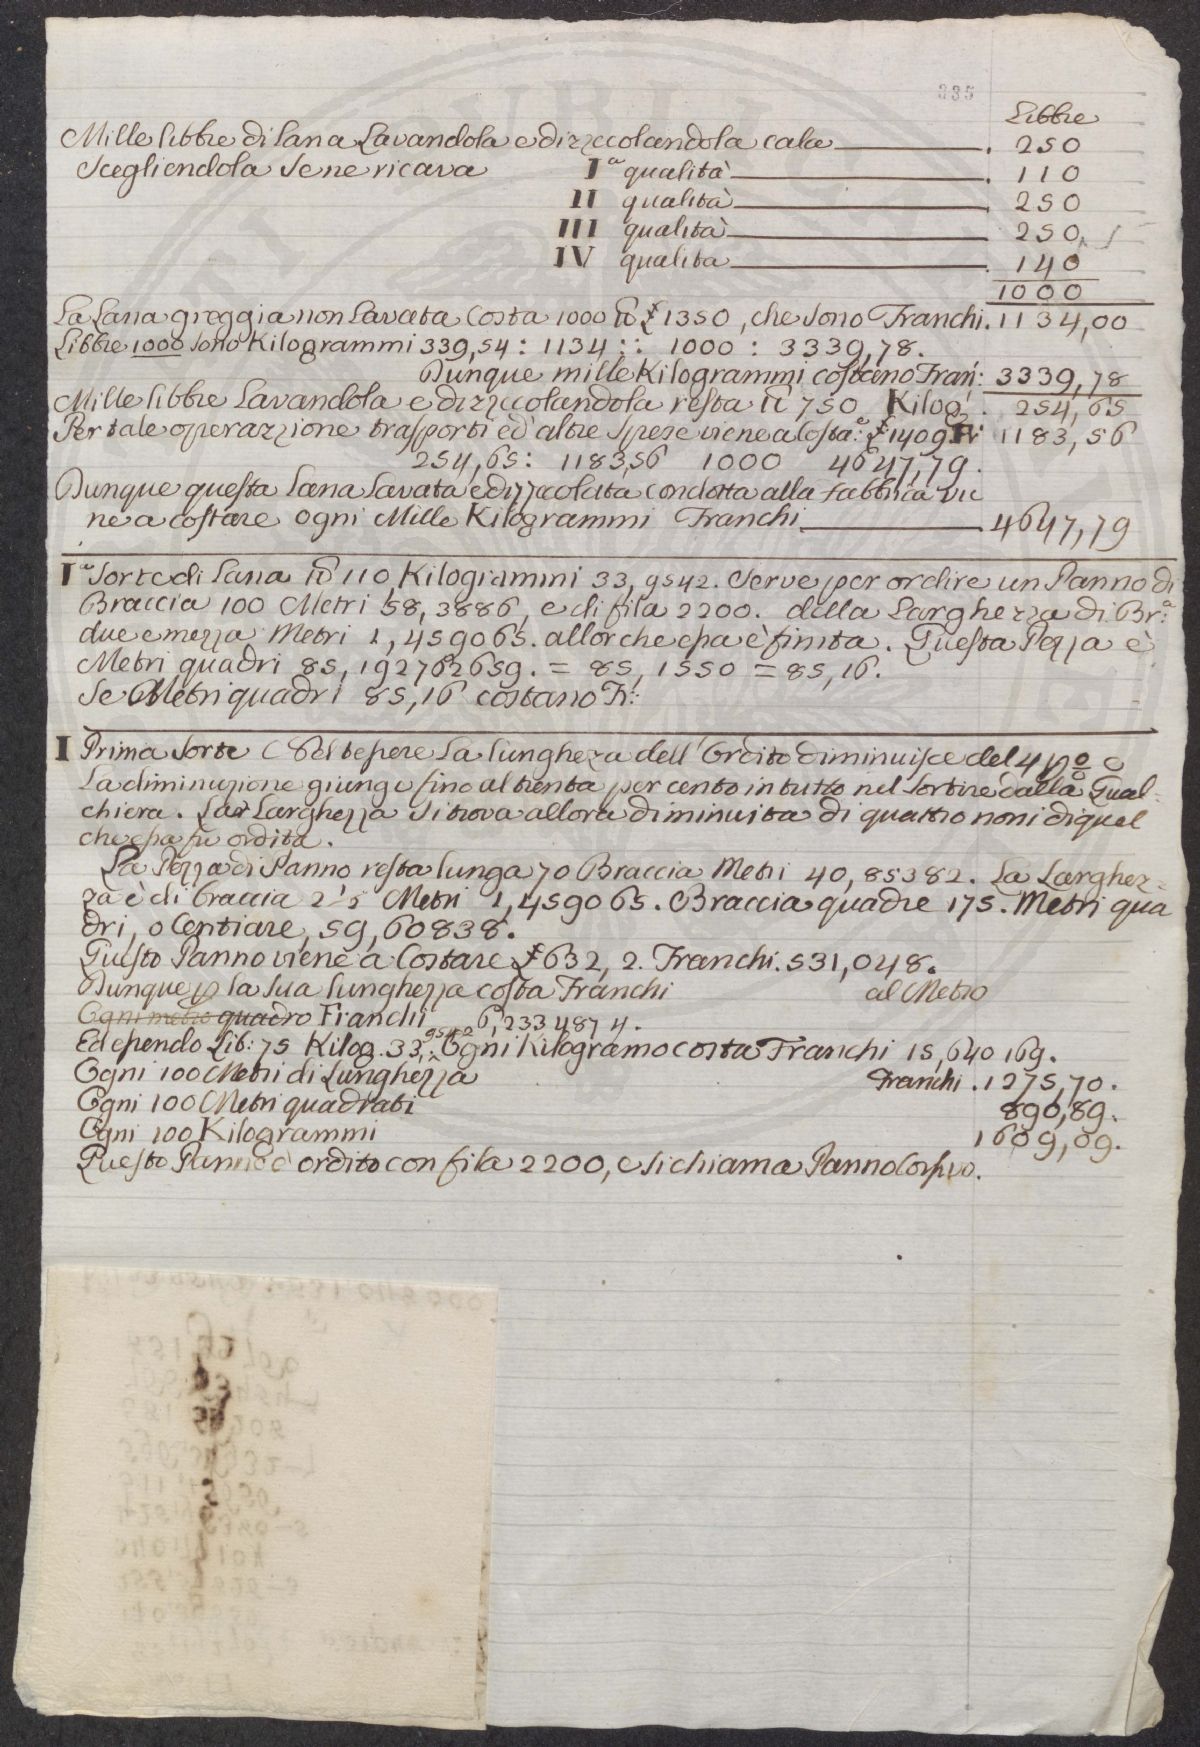 335
Libbre
Mille libbre di lana Lavandola e dizzccolandola cala . 250
Scegliendola se ne ricava Iª qualità . 110
II qualità 250
III qualità 250
IV qualità . 140
1000
La Lana greggia non Lavata Costa 1000 ₶ £ 1350, che sono Franchi. 1134,00
Libbre 1000 sono Kilogrammi 339,54 : 1134 :: 1000 : 3339,78.
Dunque mille Kilogrammi costano Fran: 3339,78
Mille libbre Lavandola e dizzccolandola resta ₶ 750 Kilog. 254,65
Per tale operazzione trasporti ed altre spese viene a Costa: £ 1409 Fr: 1183,56
254,65 : 1183,56 1000 4647,79.
Dunque questa Lana Lavata e dizzccolata condotta alla fabbrica vie
ne a costare ogni Mille Kilogrammi Franchi 4647,79
Iª Sorte di Lana ₶ 110 Kilogrammi 33,9542. Serve per ordire un Panno di
Braccia 100 Metri 58,3886, e di fila 2200. della Larghezza di Brª:
due e mezza Metri 1,459065. allorche essa è finita. Questa Pezza è
Metri quadri 85,192762659. = 85,1550 = 85,16.
Se Metri quadri 85,16 costano Fr:
I Prima Sorte Nel tessere La lunghezza dell'Ordito diminuisce del 4 p% e
La diminuzione giunge fino al trenta per cento in tutto nel sortire dalla Gual-
chiera. La Larghezza si trova allora diminuita di quattro noni di quel
che essa fù ordita.
La Pezza di Panno resta lunga 70 Braccia Metri 40,85382. La Larghez-
za è di braccia 2½ Metri 1,459065. Braccia quadre 175. Metri qua
dri, o Centiare, 59,60838.
Questo Panno viene a Costare £ 632,2. Franchi. 531,048.
Dunque p la sua lunghezza costa Franchi al Metro
Ogni metro quadro Franchi 6,2334874.
Ed essendo Lib: 75 Kilog. 33,9542 Ogni Kilogramo costa Franchi 15,640169.
Ogni 100 Metri di Lunghezza Franchi. 1275,70.
Ogni 100 Metri quadrati 890,89.
Ogni 100 Kilogrammi 1609,09.
Questo Panno è ordito con fila 2200, e si chiama Panno Corsivo.